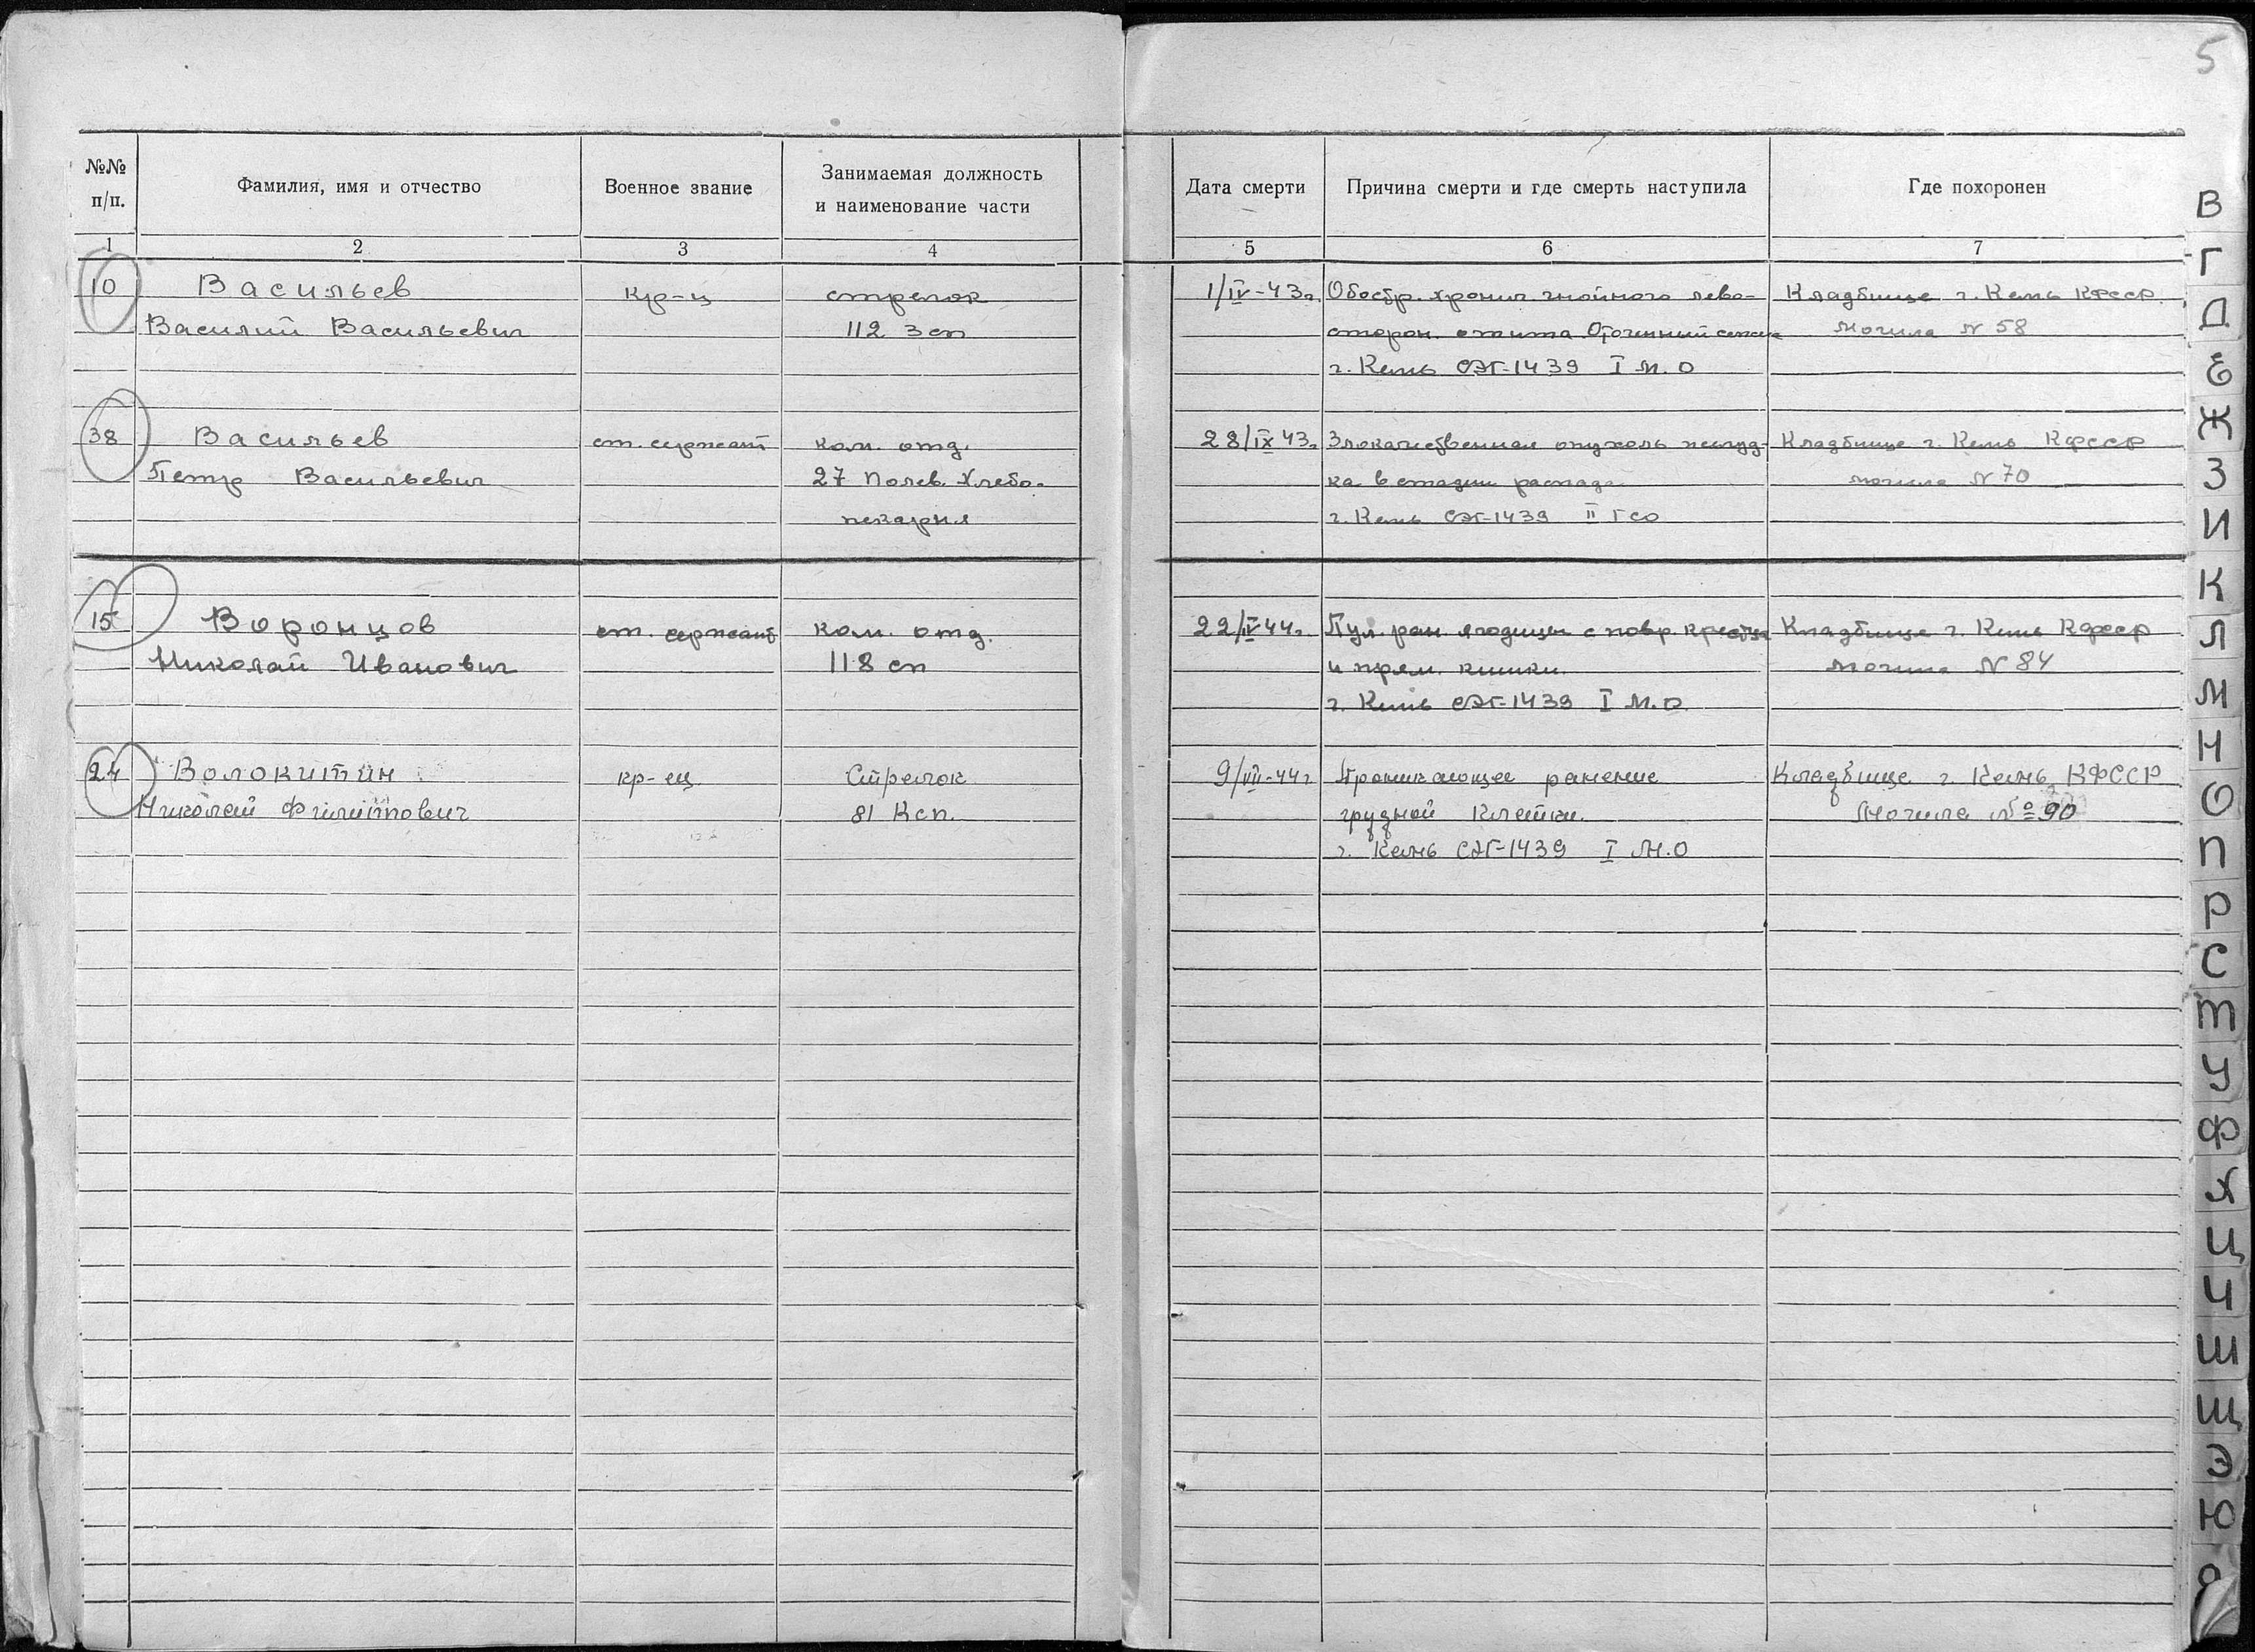 5
№№ п/п.
Фамилия, имя и отчество
Военное звание
Занимаемая должность
и наименование части
Дата смерти
Причина смерти и где смерть наступила
Где похоронен
1 2 3 4 5 6 7
10 Васильев кр-ц стрелок 1/IV-43г. Обостр. хронич. гнойного лево- Кладбище г. Кемь КФССР.
Василий Васильевич 112 Зсп сторон. отита. Отогенный сепсис могила N 58
г. Кемь СЭГ-1439 I м.о
38 Васильев ст. сержант ком. отд. 28/IX 43г. Злокачественная опухоль желуд- Кладбище г. Кемь КФССР
Петр Васильевич 27 Полев. Хлебо- ка в стадии распада могила N 70
пекарня г. Кемь СЭГ-1439 II ГСО
15 Воронцов ст. сержант ком. отд. 22/IV 44г. Пул. ран. ягодицы с повр. крестца Кладбище г. Кемь КФССР
Николай Иванович 118 сп и прям. кишки. могила N 84
г. Кемь СЭГ-1439 I м.о.
24 Волокитин кр-ец. Стрелок 9/VII-44г Проникающее ранение Кладбище г. Кемь КФССР
Николай Филиппович 81 Ксп. грудной клетки. Могила № 90
г. Кемь СЭГ-1439 I М.О
В
Г
Д
Е
Ж
З
И
К
Л
М
Н
О
П
Р
С
Т
У
Ф
Х
Ц
Ч
Ш
Щ
Э
Ю